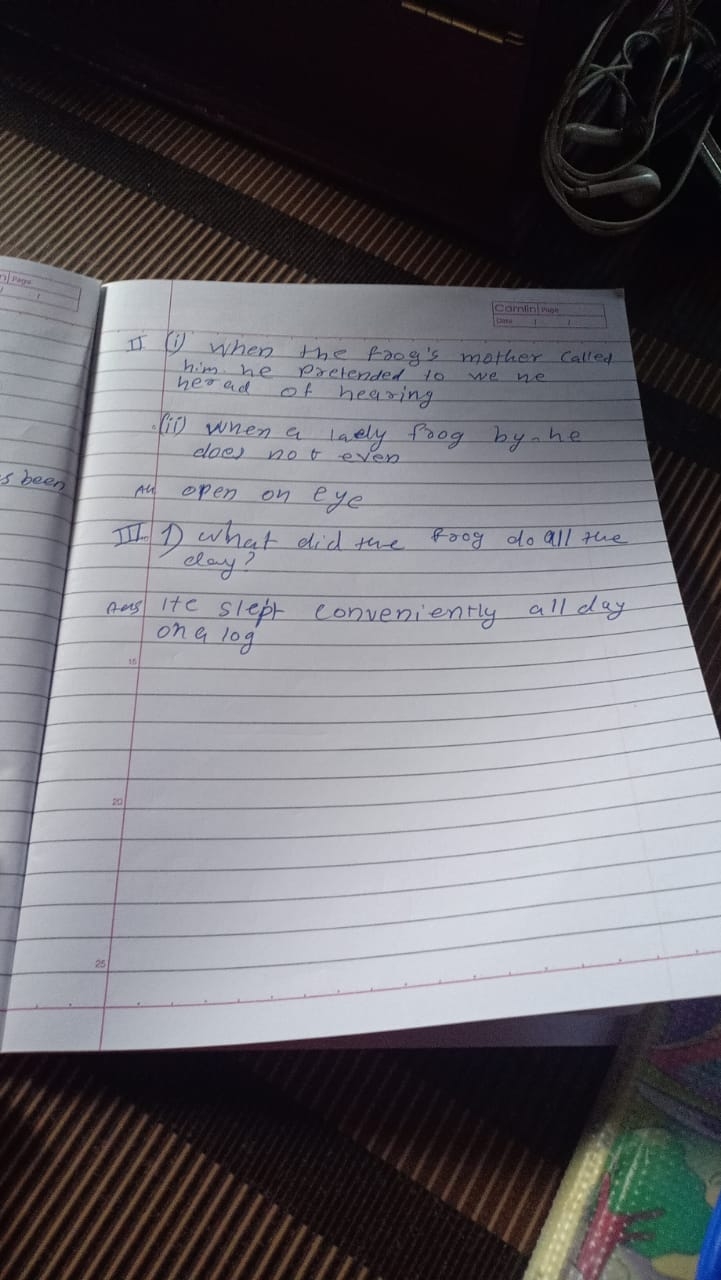 n| Page
Camlin Page
Date / /
II (i) when the frog's mother called
him he pretended to we he
herad of hearing
(ii) when a laely frog by he
s been
does not even
An open on eye
III. 1) what did the frog do all the
day?
Ans He slept conveniently all day
on a log
15
20
25